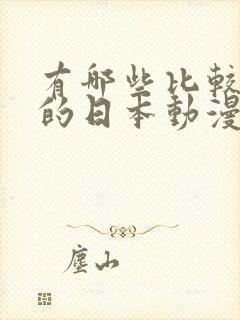 有哪些比較
的日本動漫
塵山